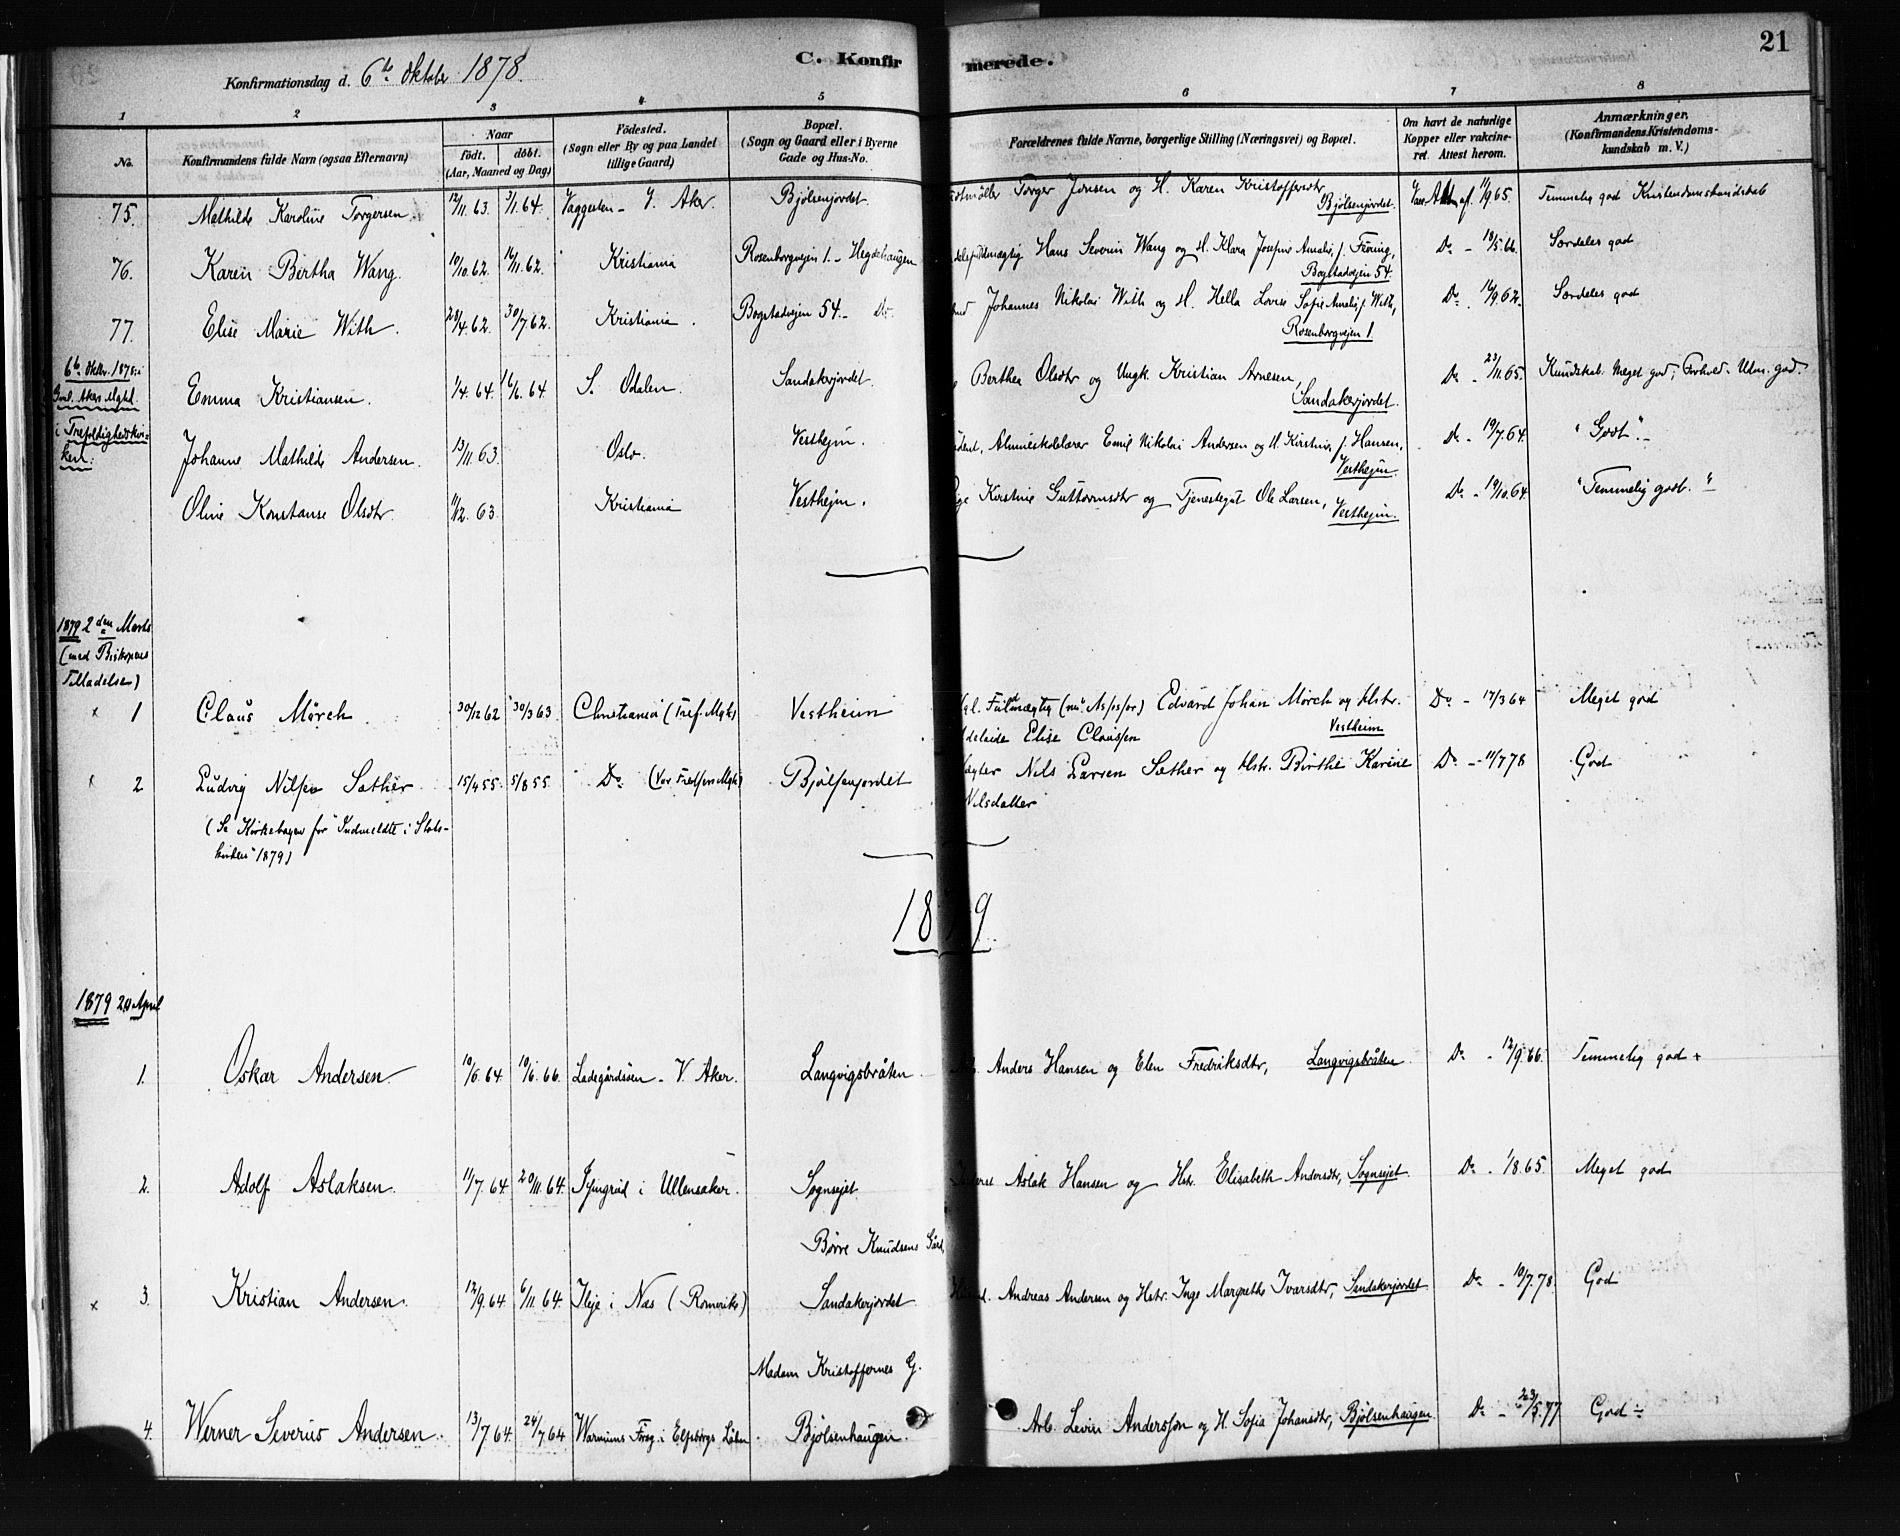 Konfirmationsdag d. 6te Oktober 1878.
C. Konfirmerede.
21
1 2 3 4 5 6 7 8
No.
Konfirmandens fulde Navn (ogsaa Efternavn)
Naar
født. døbt.
(Aar, Maaned og Dag)
Fødested.
(Sogn eller By og paa Landet
tillige Gaard)
Bopæl.
(Sogn og Gaard eller i Byerne
Gade og Hus-No.
Forældrenes fulde Navne, borgerlige Stilling (Næringsvei) og Bopæl.
Om havt de naturlige
Kopper eller vakcine-
ret. Attest herom.
Anmærkninger.
(Konfirmandens Kristendoms-
kundskab m. V.)
75. Mathilde Karoline Torgersen. 12/11.63. 3/1.64. Vaggesten - V. Aker. Bjølsenjordet. Torger Jonsen og H. Karen Kristoffersdtr Vacc. Att. af 11/9 65. Temmelig god Kristendomskundskab
Bjølsenjordet.
76. Karen Bertha Wang. 10/10.62. 16/11.62. Kristiania Rosenborgvejen 1. - Hegdehaugen Hans Severin Wang og H. Klara Josefine Amalie, f. Frøning, Do - 18/5.66. Særdeles god
Bogstadvejen 54.
77. Elise Marie With. 28/4.62. 30/7.62. Kristiania. Bogstadvejen 54. - Do. Johannes Nikolai With og H. Hella Lovise Sofie Amalie f. With, Do - 16/9.62. Særdeles god
Rosenborgvejen 1
6te Oktbr. 1878 i
Gml. Akers Mghd.
i Trefoldighedskir-
ken.
Emma Kristiansen. 1/4.64. 16/6.64. S. Odalen. Sandakerjordet. Berthea Olsdtr og Ungk. Kristian Arnesen, Do - 23/11.65. Kundskab. Meget god; Forhold. Udm. god.
Sandakerjordet.
Johanne Mathilde Andersen. 13/11.63. Oslo. Vesthejm. Almueskolelærer Emil Nikolai Andersen og H Kirstine, f. Hansen, Do - 19/7.64. "Godt".
Vesthejm.
Oline Konstanse Olsdtr. 11/12.63. Kristiania Vesthejm. Kirstine Guttormsdtr og Tjenestegut Ole Larsen, Vesthejm. Do - 19/10.64. "Temmelig godt."
1879 2den Marts
(med Biskopens
Tilladelse)
× 1 Claus Mörch 30/12 62 30/3 63 Christiania (Tref. Mgh) Vestheim Fuldmægtig (nu Assessor) Edvard Johan Mörch og Hstr. Do - 17/3 64 Meget god
Elise Claussen Vestheim
× 2 Ludvig Nilsen Sæther 15/4 55 5/8 55 Do (Vor Frelsers Mgh) Bjölsenjordet Nils Larsen Sæther og Hstr. Birthe Karine Do - 11/7 78 God
Nilsdatter
(Se Kirkebogen for "Indmeldte i Stats-
kirken" 1879)
1879
1879 20 April
1. Oskar Andersen. 10/6.64. 10/6.66. Ladegårdsøen - V. Aker. Langvigsbråten. Anders Hansen og Elen Fredriksdtr, Langvigsbråten Do - 12/9.66. Temmelig god +
2. Adolf Aslaksen. 11/7.64 20/11.64. i Ullensaker. Sognsejet. Aslak Hansen og Hstr. Elisabeth Andersdtr, Sognsejet. Do - 1/8.65. Meget god
Børre Knudsens Gård,
× 3. Kristian Andersen. 12/9.64 6/11.64. i Næs (Romerike) Sandakerjordet Andreas Andersen og Hstr. Inge Margrethe Ivarsdtr, Sandakerjordet Do - 10/7.78. God
Madam Kristoffernes G.
4. Werner Severus Andersen. 13/7 64 24/7 64 Warnums Fors. i Elfsborgs Län. Bjølsenhaugen. Arb. Levin Andersson og H. Sofia Johansdtr, Bjølsenhaugen. Do - 23/5.77 God ÷